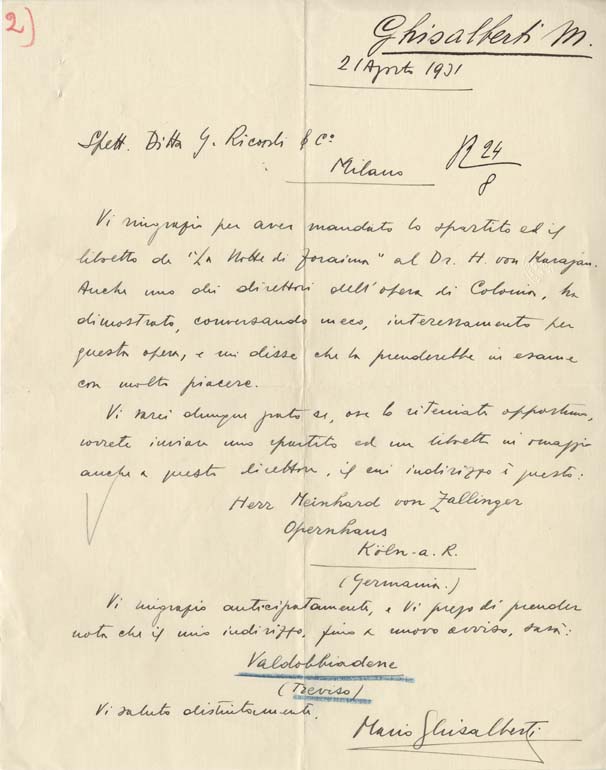 2)
Ghisalberti M.
21 Agosto 1931
Spett. Ditta G. Ricordi & Cº
Milano
R 24/8
Vi ringrazio per aver mandato lo spartito ed il
libretto de "La Notte di Zoraima" al Dr. H. von Karajan.
Anche uno dei direttori dell'opera di Colonia, ha
dimostrato, conversando meco, interessamento per
questa opera, e mi disse che la prenderebbe in esame
con molto piacere.
Vi sarei dunque grato se, ove lo riteniate opportuno,
vorrete inviare uno spartito ed un libretto in omaggio
anche a questo direttore, il cui indirizzo è questo:
Herr Meinhard von Zallinger
Opernhaus
Köln-a. R.
(Germania.)
Vi ringrazio anticipatamente, e Vi prego di prender
nota che il mio indirizzo, fino a nuovo avviso, sarà:
Valdobbiadene
(Treviso)
Vi saluto distintamente.
Mario Ghisalberti